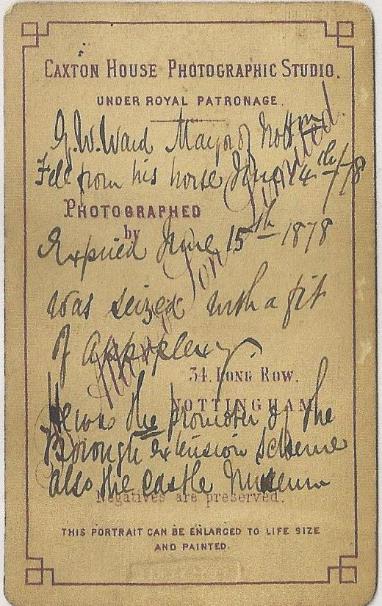 CAXTON HOUSE PHOTOGRAPHIC STUDIO.
UNDER ROYAL PATRONAGE.
G. W. Ward Mayor of Nottm
Fell from his horse June 14th /78
PHOTOGRAPHED
by
Expired June 15th 1878
was seized with a fit
of appoplexy
34, LONG ROW,
NOTTINGHAM
He was the promoter of the
Borough extension scheme
also the Castle Museum
Negatives are preserved.
THIS PORTRAIT CAN BE ENLARGED TO LIFE SIZE
AND PAINTED.